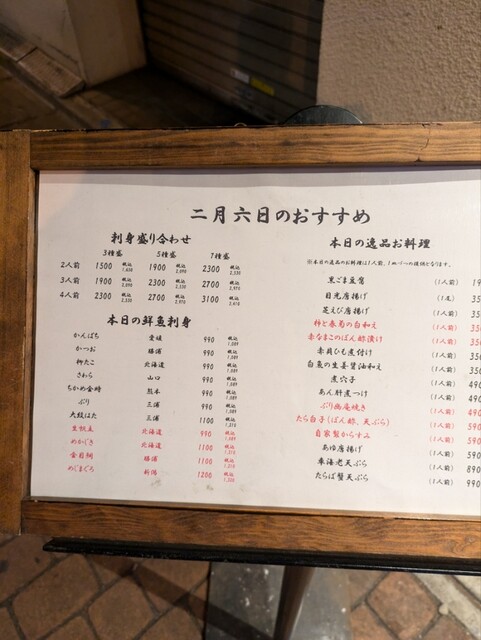 二月六日のおすすめ
刺身盛り合わせ
3種盛 5種盛 7種盛
2人前 1500 税込 1,650 1900 税込 2,090 2300 税込 2,530
3人前 1900 税込 2,090 2300 税込 2,530 2700 税込 2,970
4人前 2300 税込 2,530 2700 税込 2,970 3100 税込 3,410
本日の鮮魚刺身
かんぱち 愛媛 990 税込 1,089
かつお 勝浦 990 税込 1,089
柳たこ 北海道 990 税込 1,089
さわら 山口 990 税込 1,089
ちかめ金時 熊本 990 税込 1,089
ぶり 三浦 990 税込 1,089
大紋はた 三浦 1100 税込 1,210
生帆立 北海道 990 税込 1,089
めかじき 北海道 1100 税込 1,210
金目鯛 勝浦 1100 税込 1,210
めじまぐろ 1200 税込 1,320
本日の逸品お料理
黒ごま豆腐 (1人前)
目光唐揚げ
芝えび唐揚げ (1人前)
柿と春菊の白和え (1人前)
赤なまこのぽん酢漬け (1人前)
赤貝ひも煮付け (1人前)
白魚の生姜醤油和え (1人前)
煮穴子 (1人前)
あん肝煮つけ (1人前)
ぶり幽庵焼き (1人前)
たら白子(ぽん酢、天ぷら) (1人前)
自家製からすみ (1人前)
あゆ唐揚げ (1人前)
車海老天ぷら (1人前)
たらば蟹天ぷら (1人前)